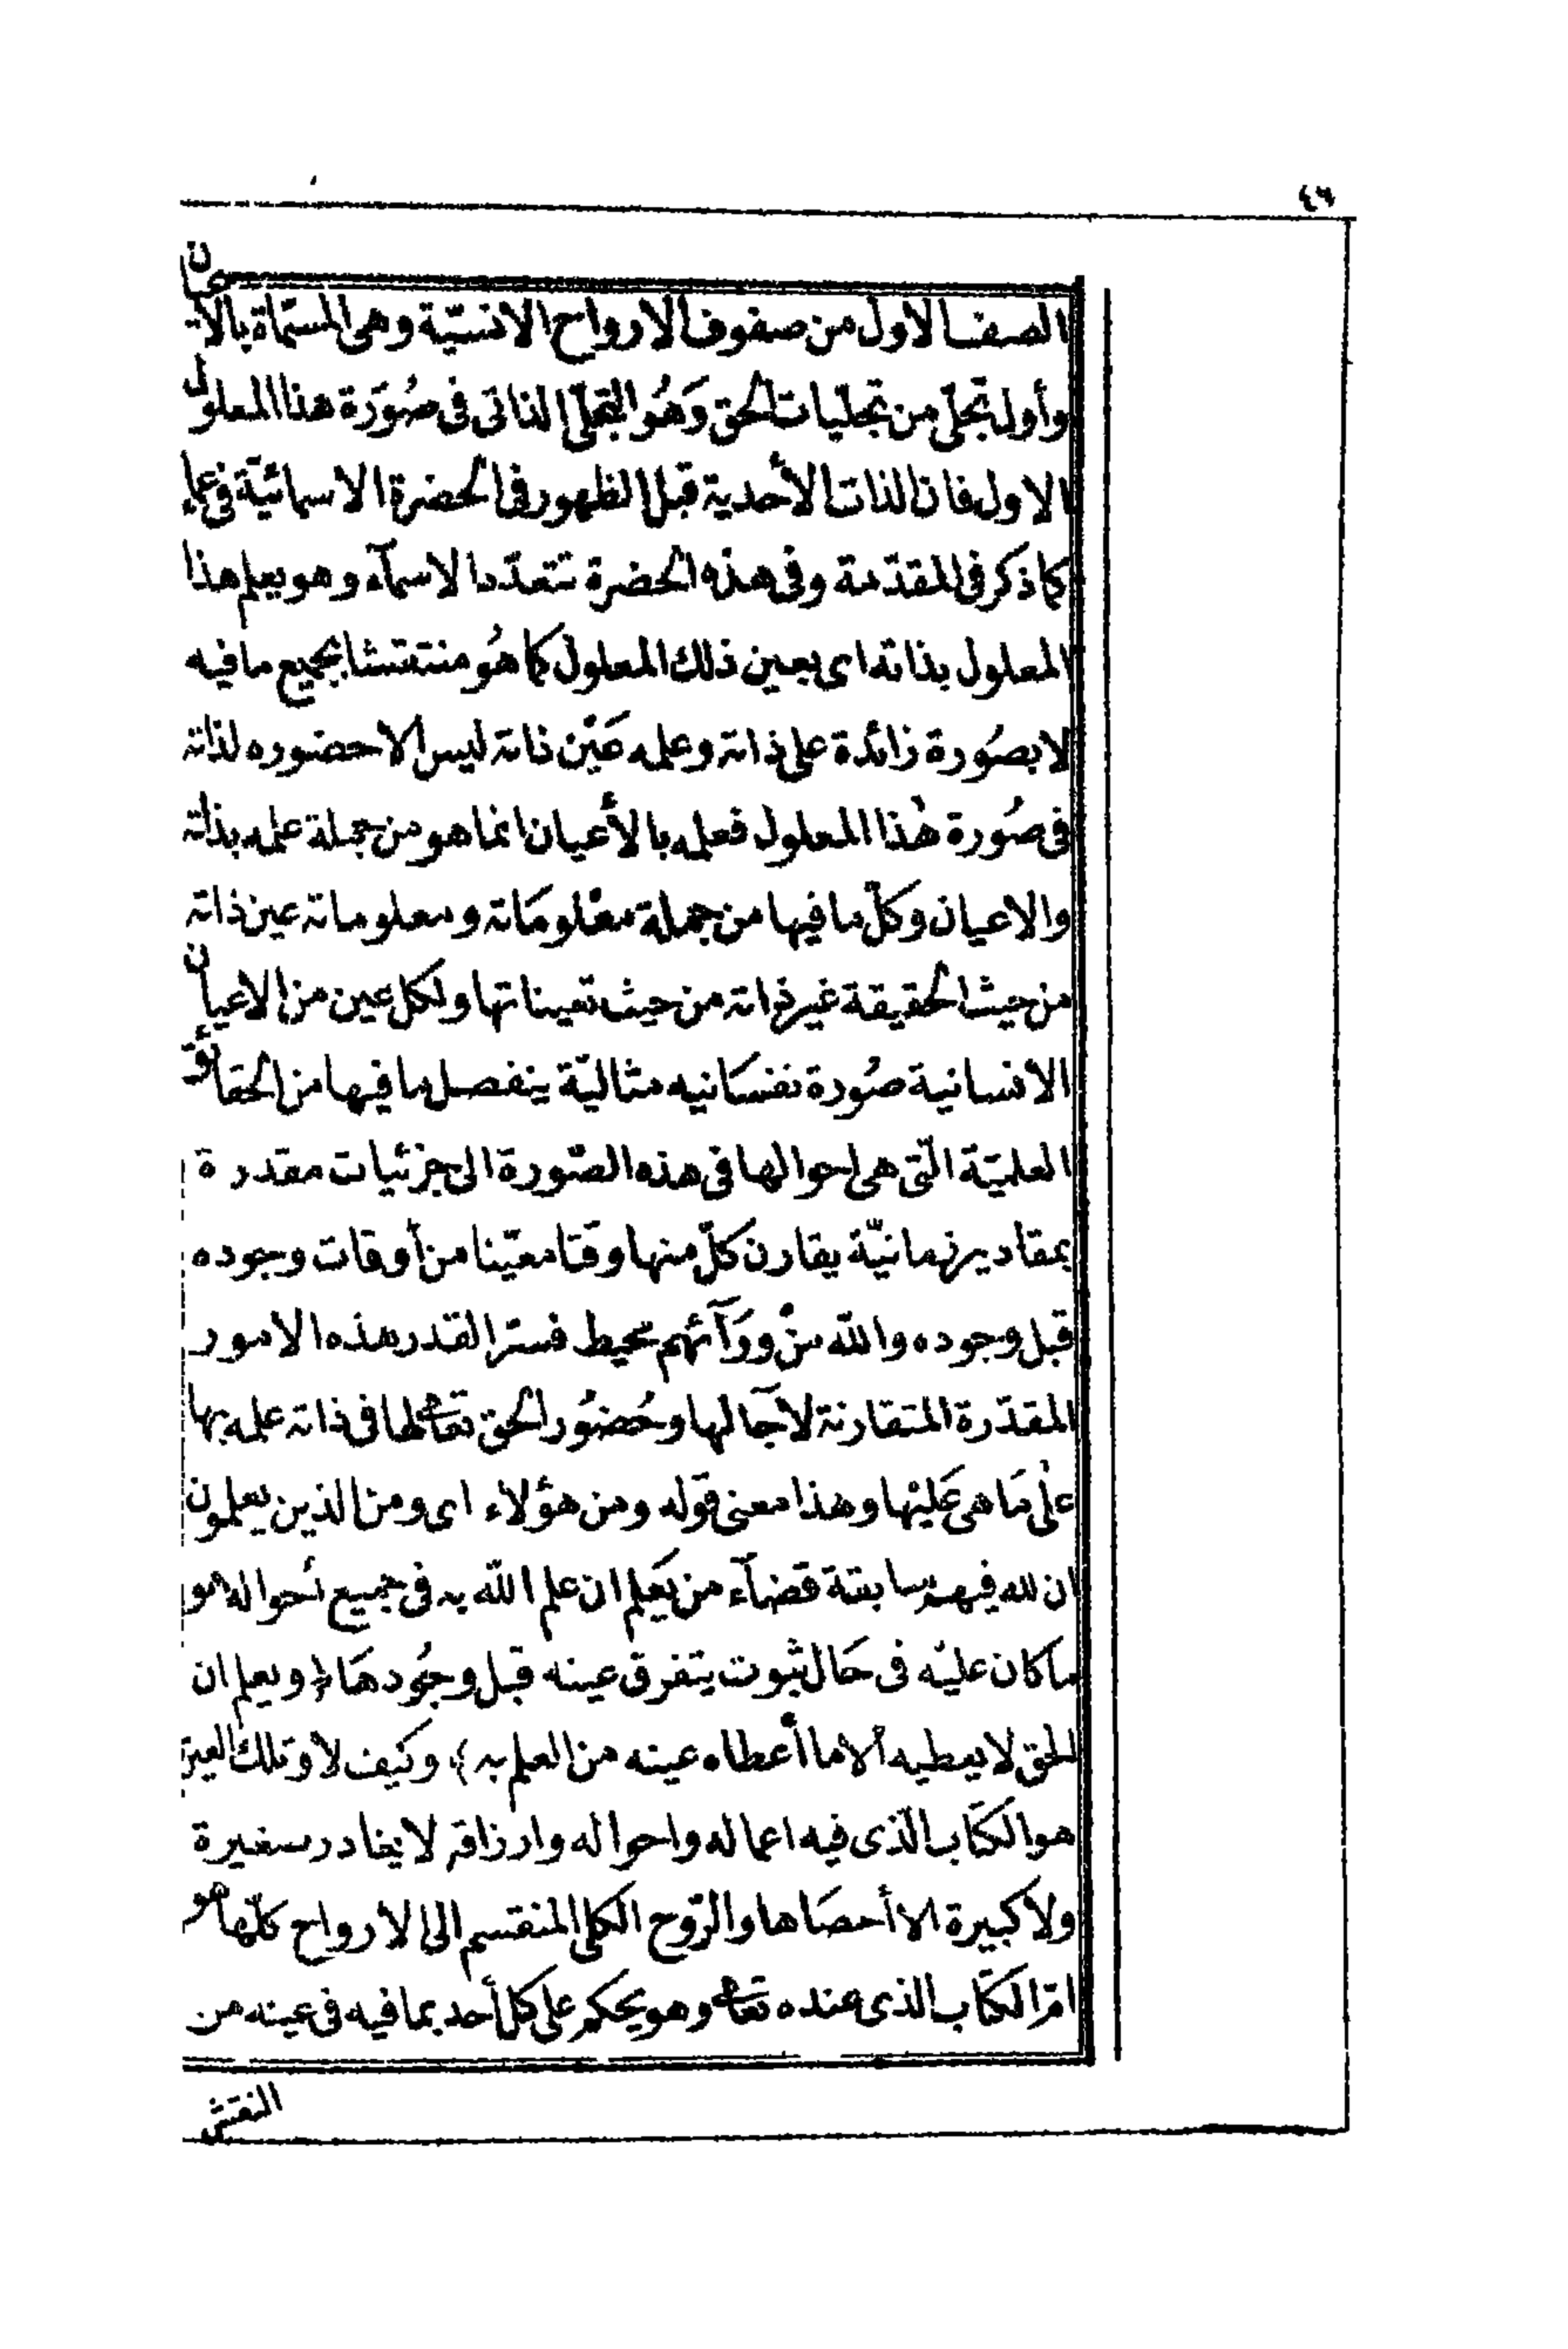 ٤٦
الصف الاول من صفوف الارواح الانسيّة وهى المسمّاة بالاعيان
وأول تجلّى من تجليات الحق وَهُو التجلّى الذاتى فى صُورَة هذا المعلول
الاول فان الذات الأحدية قبل الظهور فى الحضرة الاسمائيّة فى عماء
كما ذكر فى المقدّمة وفى هذه الحضرة تتعدّد الاسمآء وهو يعلم هذا
المعلول بذاته اى بعين ذلك المعلول كما هُو منتقشا بجميع ما فيه
لا بصُورة زائدة على ذاته وعلمه عَيْن ذاته ليس الا حضوره لذاته
فى صُورة هٰذا المعلول فعلمه بالأعيان انما هو من جملة علمه بذاته
والاعيان وكلّ ما فيها من جملة معْلومَاته ومعلوماته عين ذاته
من حيث الحقيقة غير ذاته من حيث تعيناتها ولكل عين من الاعيان
الانسانية صُورة نفسَانيه مثاليّة ينفصل ما فيها من الحقائق
العلميّة الّتى هى احوالها فى هذه الصّورة الى جزئيات مقدرة
بمقادير زمانيّة يقارن كلّ منها وقتا معيّنا من أوقات وجوده
قبل وجوده والله منْ ورَآئهم محيط فسرّ القدر هذه الامور
المقدّرة المتقارنة لآجالها وحُضُور الحق تعالى لها فى ذاته علمه بها
علٰى مَا هى عَليْها وهذا معنى قوله ومن هؤلاء اى ومن الذين يعلمون
ان لله فيهم سابقة قضآء من يَعلم ان علم الله به فى جميع أحواله هو
ما كان عليْه فى حَال ثبوت يتفرق عينه قبل وجُودهَا (ويعلم ان
الحق لا يعطيه ألا ما أعطاه عينه من العلم به) وكيف لا وتلك العين
هو الكتَاب الّذى فيه اعماله واحواله وارزاقه لا يغادر صغيرة
ولا كبيرة الا أحصَاها والرّوح الكلى المنقسم الى الارواح كلّها هو
امّ الكتَاب الذى عنده تعالى وهو يحكم على كل أحد بما فيه فى عينه من
النقش